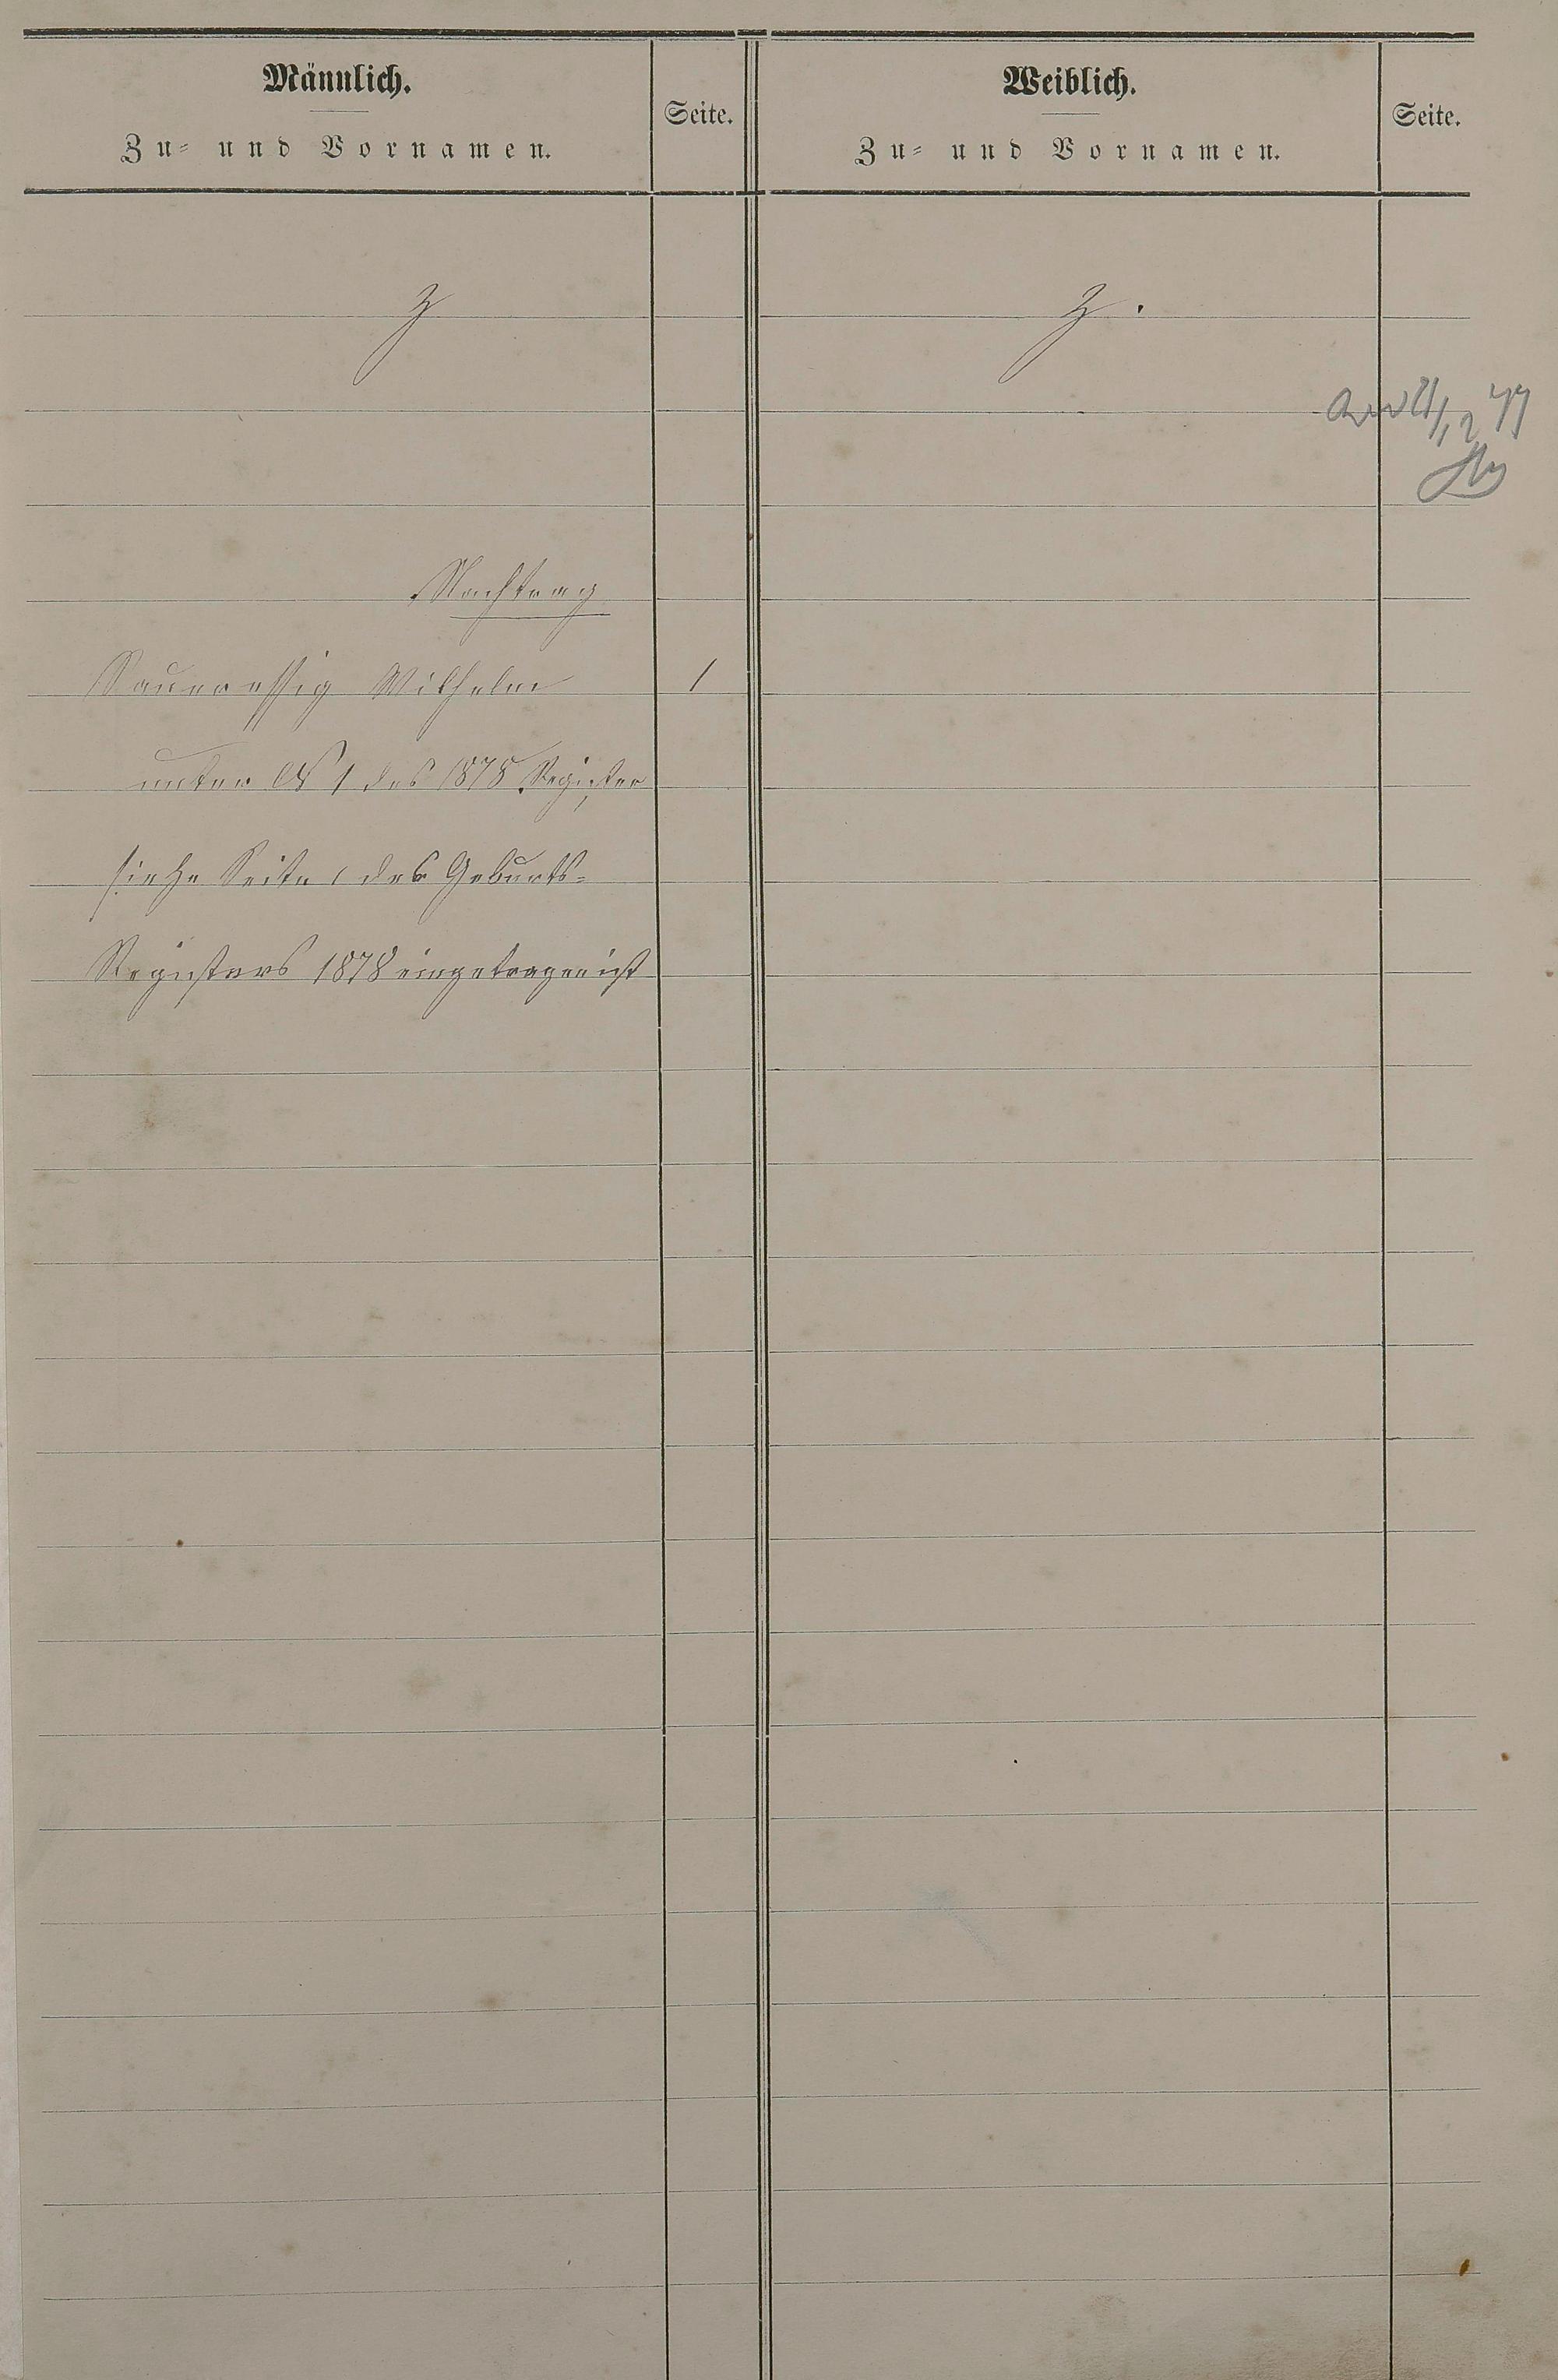 Männlich.
Zu- und Vornamen.
Seite.
Weiblich.
Zu- und Vornamen.
Seite.
Z
Z.
Nachtrag
Saueressig Wilhelm 1
unter № 1 des 1878 Register
siehe Seite 1 des Geburts-
Registers 1878 eingetragen ist